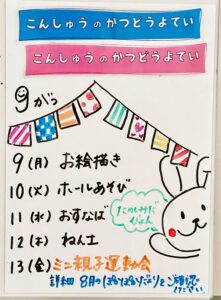 こんしゅうのかつどうよてい
こんしゅうのかつどうよてい
9がつ
9(月) お絵描き
10(火) ホールあそび
11(水) おすなば
12(木) ねん土
13(金) ミニ親子運動会
たのしみだぴょん
詳細 8月のぽかぽかだよりをご確認ください。